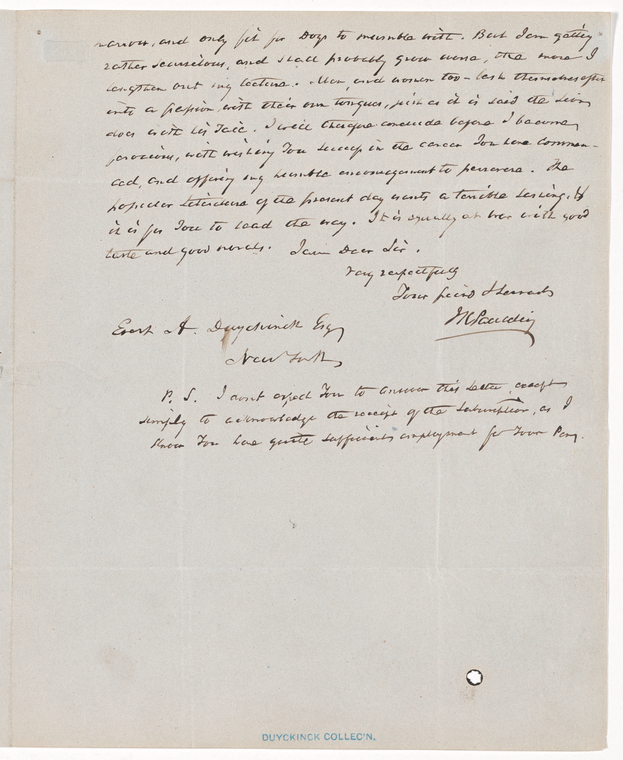 marrow, and only fit for Dogs to mumble with. But I am getting
rather censorious, and shall probably grow worse, the more I
lengthen out my lecture. Men, and women too - lash themselves often
into a passion, with their own tongues, just as it is said the Lion
does with his Tail. I will therefore conclude before I become
ferocious, with wishing You success in the career You have commen-
ced, and offering my humble encouragement to persevere. The
popular literature of the present day wants a terrible lashing, &
it is for You to lead the way. It is equally at war with good
taste and good morals. I am Dear Sir.
Very respectfully
Your friend & Servant
JK Paulding
Evert A. Duyckinck Esq
New York
P. S. I don't expect You to answer this Letter, except
simply to acknowledge the receipt of the Subscription, as I
know You have quite sufficient employment for Your Pen.
DUYCKINCK COLLEC'N.